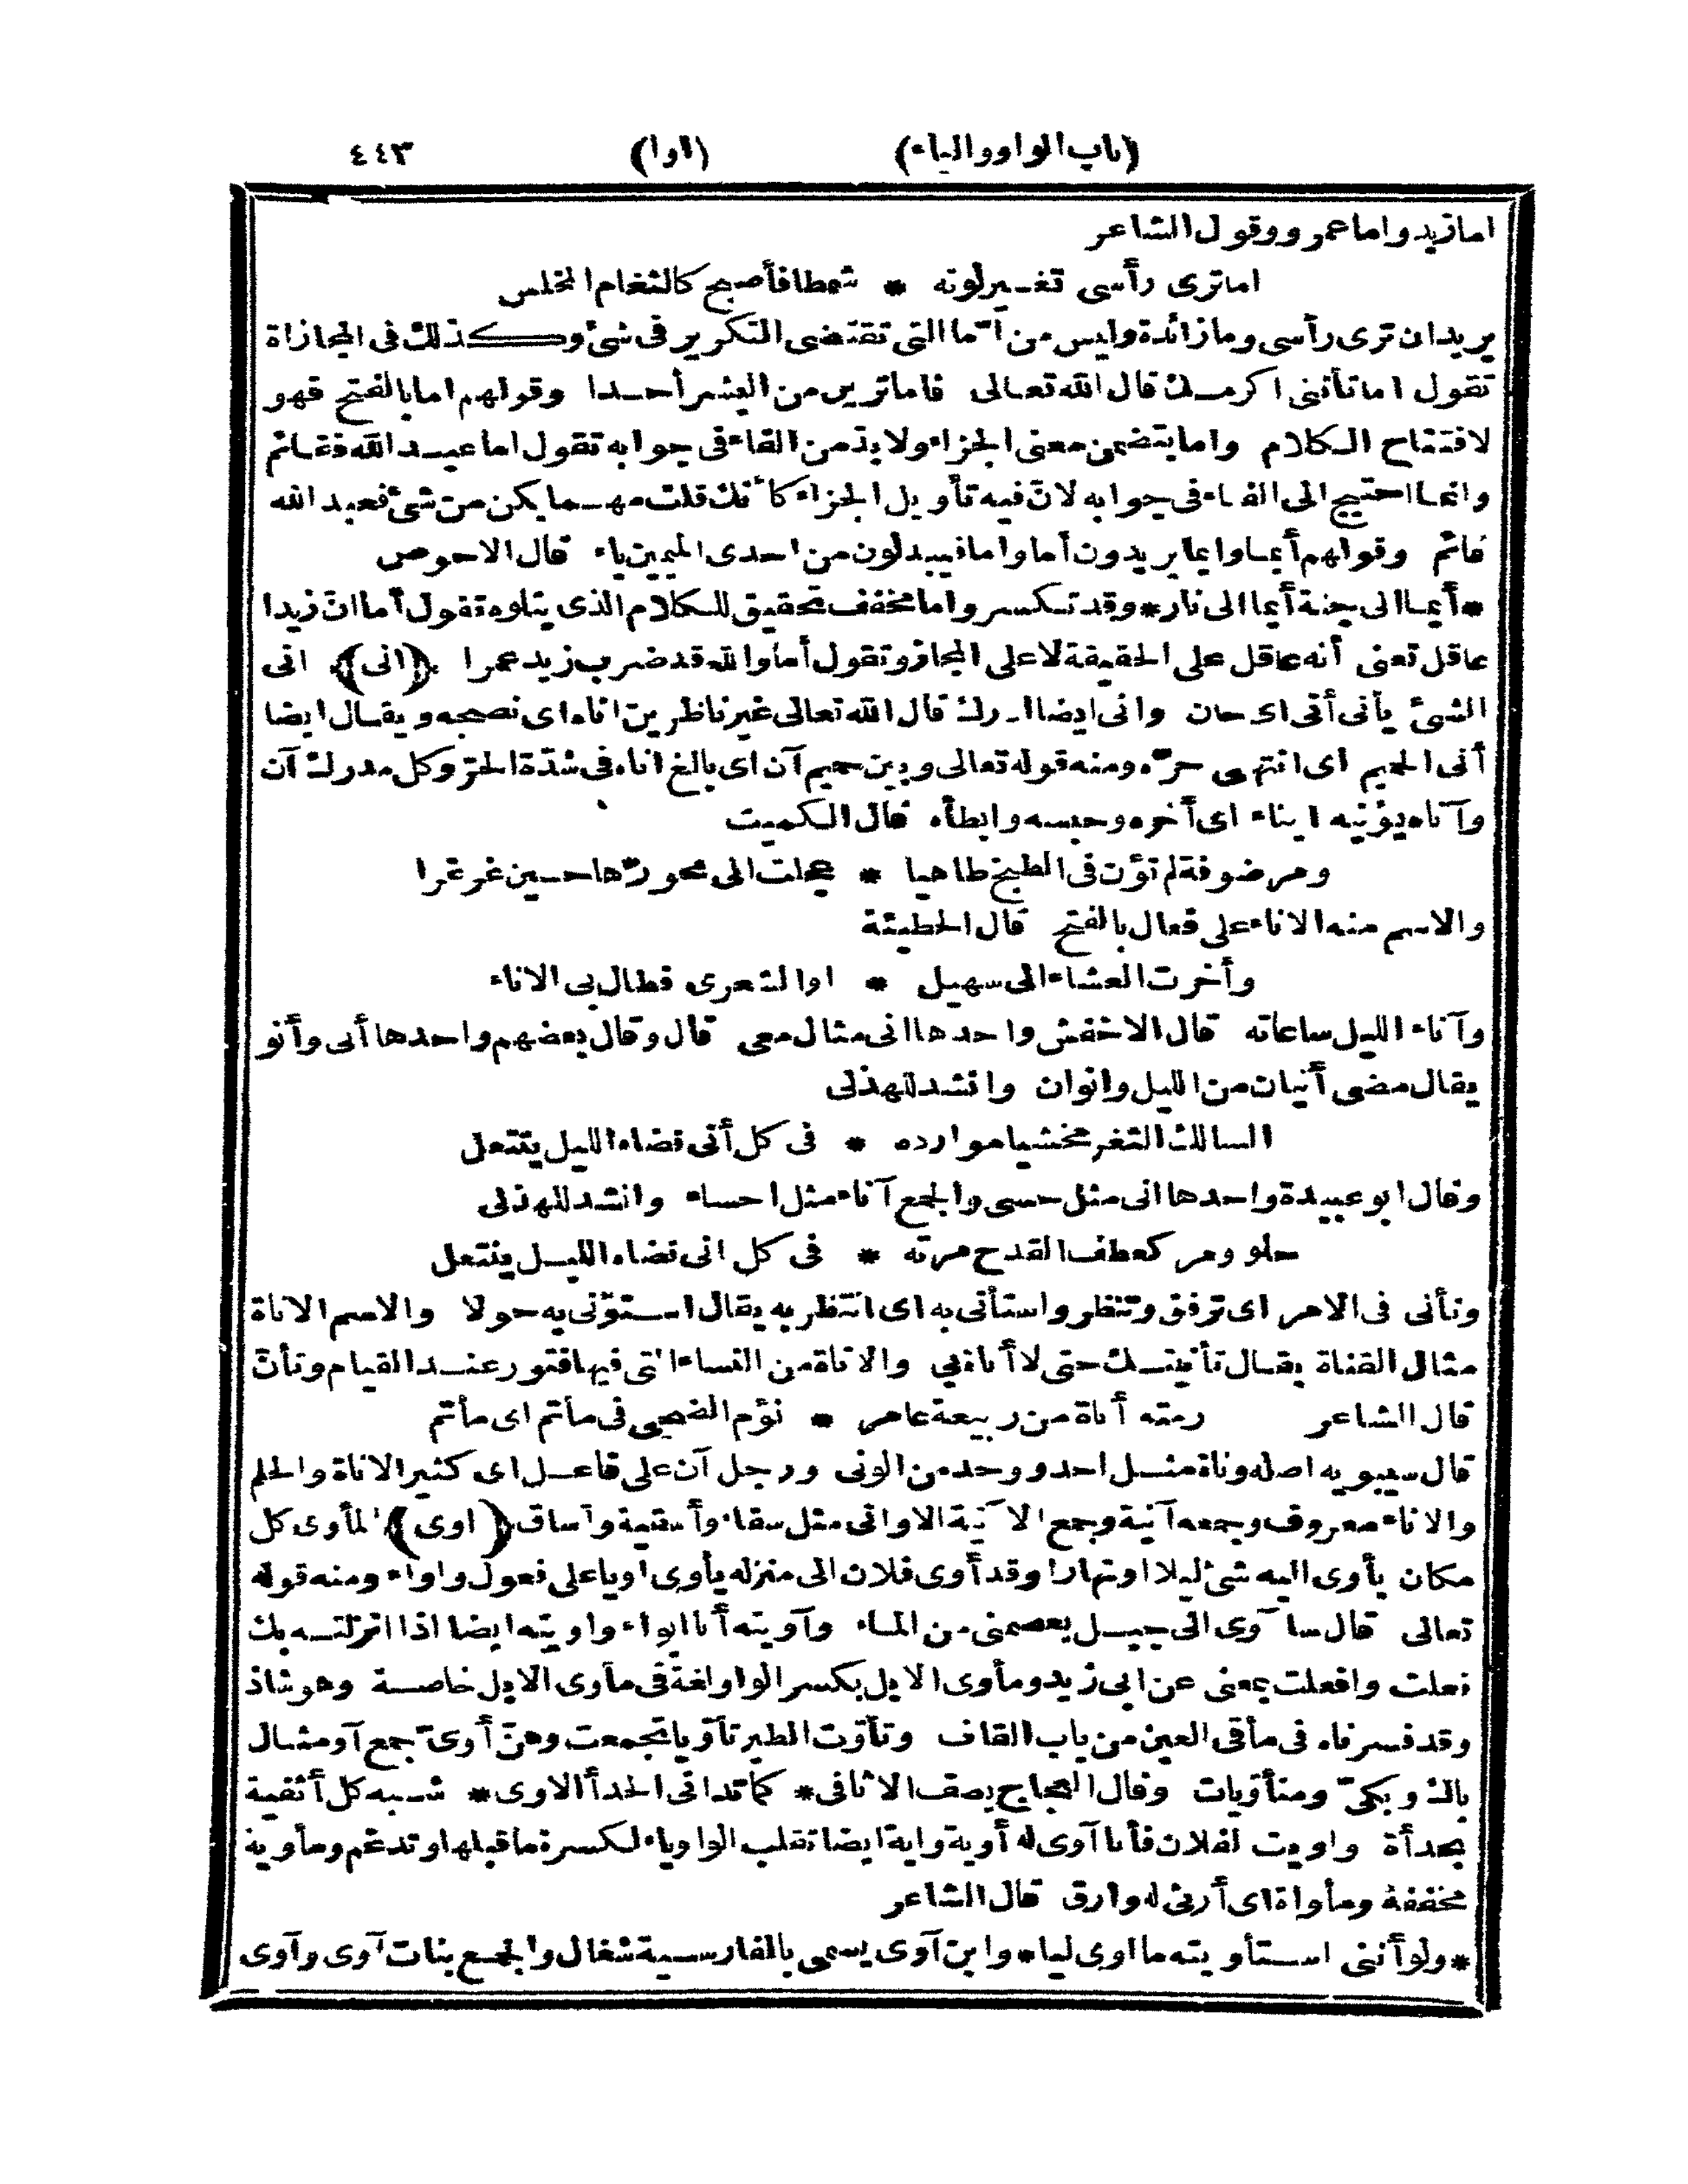 (باب الواو والياء) (اوا) ٤٤٣
اما زيد واما عمرو وقول الشاعر
اما ترى رأسى تغير لونه * شمطا فأصبح كالثغام المخلس
يريد ان ترى رأسى وما زائدة وليس من اما التى تقتضى التكرير فى شئ وكذلك فى المجازاة
تقول اما تأتنى اكرمك قال الله تعالى فاما ترين من البشر أحدا وقولهم اما بالفتح فهو
لافتتاح الكلام واما يتضمن معنى الجزاء ولا بد من الفاء فى جوابه تقول اما عبد الله فقائم
وانما احتيج الى الفاء فى جوابه لان فيه تأويل الجزاء كأنك قلت مهما يكن من شئ فعبد الله
قائم وقولهم أيما وايما يريدون أما واما فيبدلون من احدى الميمين ياء قال الاحوص
* أيما الى جنة أيما الى نار * وقد تكسر واما مخفف تحقيق للكلام الذى يتلوه تقول أما ان زيدا
عاقل تعنى أنه عاقل على الحقيقة لا على المجاز وتقول أما والله قد ضرب زيد عمرا ﴿انى﴾ انى
الشئ يأنى أنى اى حان وانى ايضا ادرك قال الله تعالى غير ناظرين اناه اى نضجه ويقال ايضا
أنى الحميم اى انتهى حره ومنه قوله تعالى وبين حميم آن اى بالغ اناه فى شدة الحر وكل مدرك آن
وآناه يؤنيه ايناء اى أخره وحبسه وابطأه قال الكميت
ومرضوفة لم تؤن فى الطبخ طاهيا * عجلت الى محورها حين غرغرا
والاسم منه الاناء على فعال بالفتح قال الحطيئة
وأخرت العشاء الى سهيل * او الشعرى فطال بى الاناء
وآناء الليل ساعاته قال الاخفش واحدها انى مثال معى قال وقال بعضهم واحدها أنى وأنو
يقال مضى أنيان من الليل وانوان وانشد للهذلى
السالك الثغر مخشيا موارده * فى كل أنى قضاه الليل ينتعل
وقال ابو عبيدة واحدها انى مثل حسى والجمع آناء مثل احساء وانشد للهذلى
حلو ومر كعطف القدح مرته * فى كل انى قضاه الليل ينتعل
وتأنى فى الامر اى ترفق وتنظر واستأنى به اى انتظر به يقال استؤنى به حولا والاسم الاناة
مثال القناة يقال تأنيتك حتى لا أناة بى والاناة من النساء التى فيها فتور عند القيام وتأن
قال الشاعر رمته أناة من ربيعة عامر * نؤم الضحى فى مأتم اى مأتم
قال سيبويه اصله وناة مثل احد ووحد من الونى ورجل آن على فاعل اى كثير الاناة والحلم
والاناء معروف وجمعه آنية وجمع الآنية الاوانى مثل سقاء وأسقية وأساق ﴿اوى﴾ المأوى كل
مكان يأوى اليه شئ ليلا او نهارا وقد أوى فلان الى منزله يأوى اويا على فعول واواء ومنه قوله
تعالى قال سآوى الى جبل يعصمنى من الماء وآويته أنا ايواء واويته ايضا اذا انزلته بك
فعلت وافعلت بمعنى عن ابى زيد ومأوى الابل بكسر الواو لغة فى مأوى الابل خاصة وهو شاذ
وقد فسرناه فى مأقى العين من باب القاف وتأوت الطير تأويا تجمعت وهن أوى جمع آو مثال
باك وبكى ومتأويات وقال العجاج يصف الاثافى * كما تدانى الحدأ الاوى * شبه كل أثفية
بحدأة واويت لفلان فأنا آوى له أوية واية ايضا تقلب الواو ياء لكسرة ما قبلها وتدغم ومأوية
مخففة ومأواة اى أرثى له وارق قال الشاعر
* ولو أننى استأويته ما اوى ليا * وابن آوى يسمى بالفارسية شغال والجمع بنات آوى وآوى